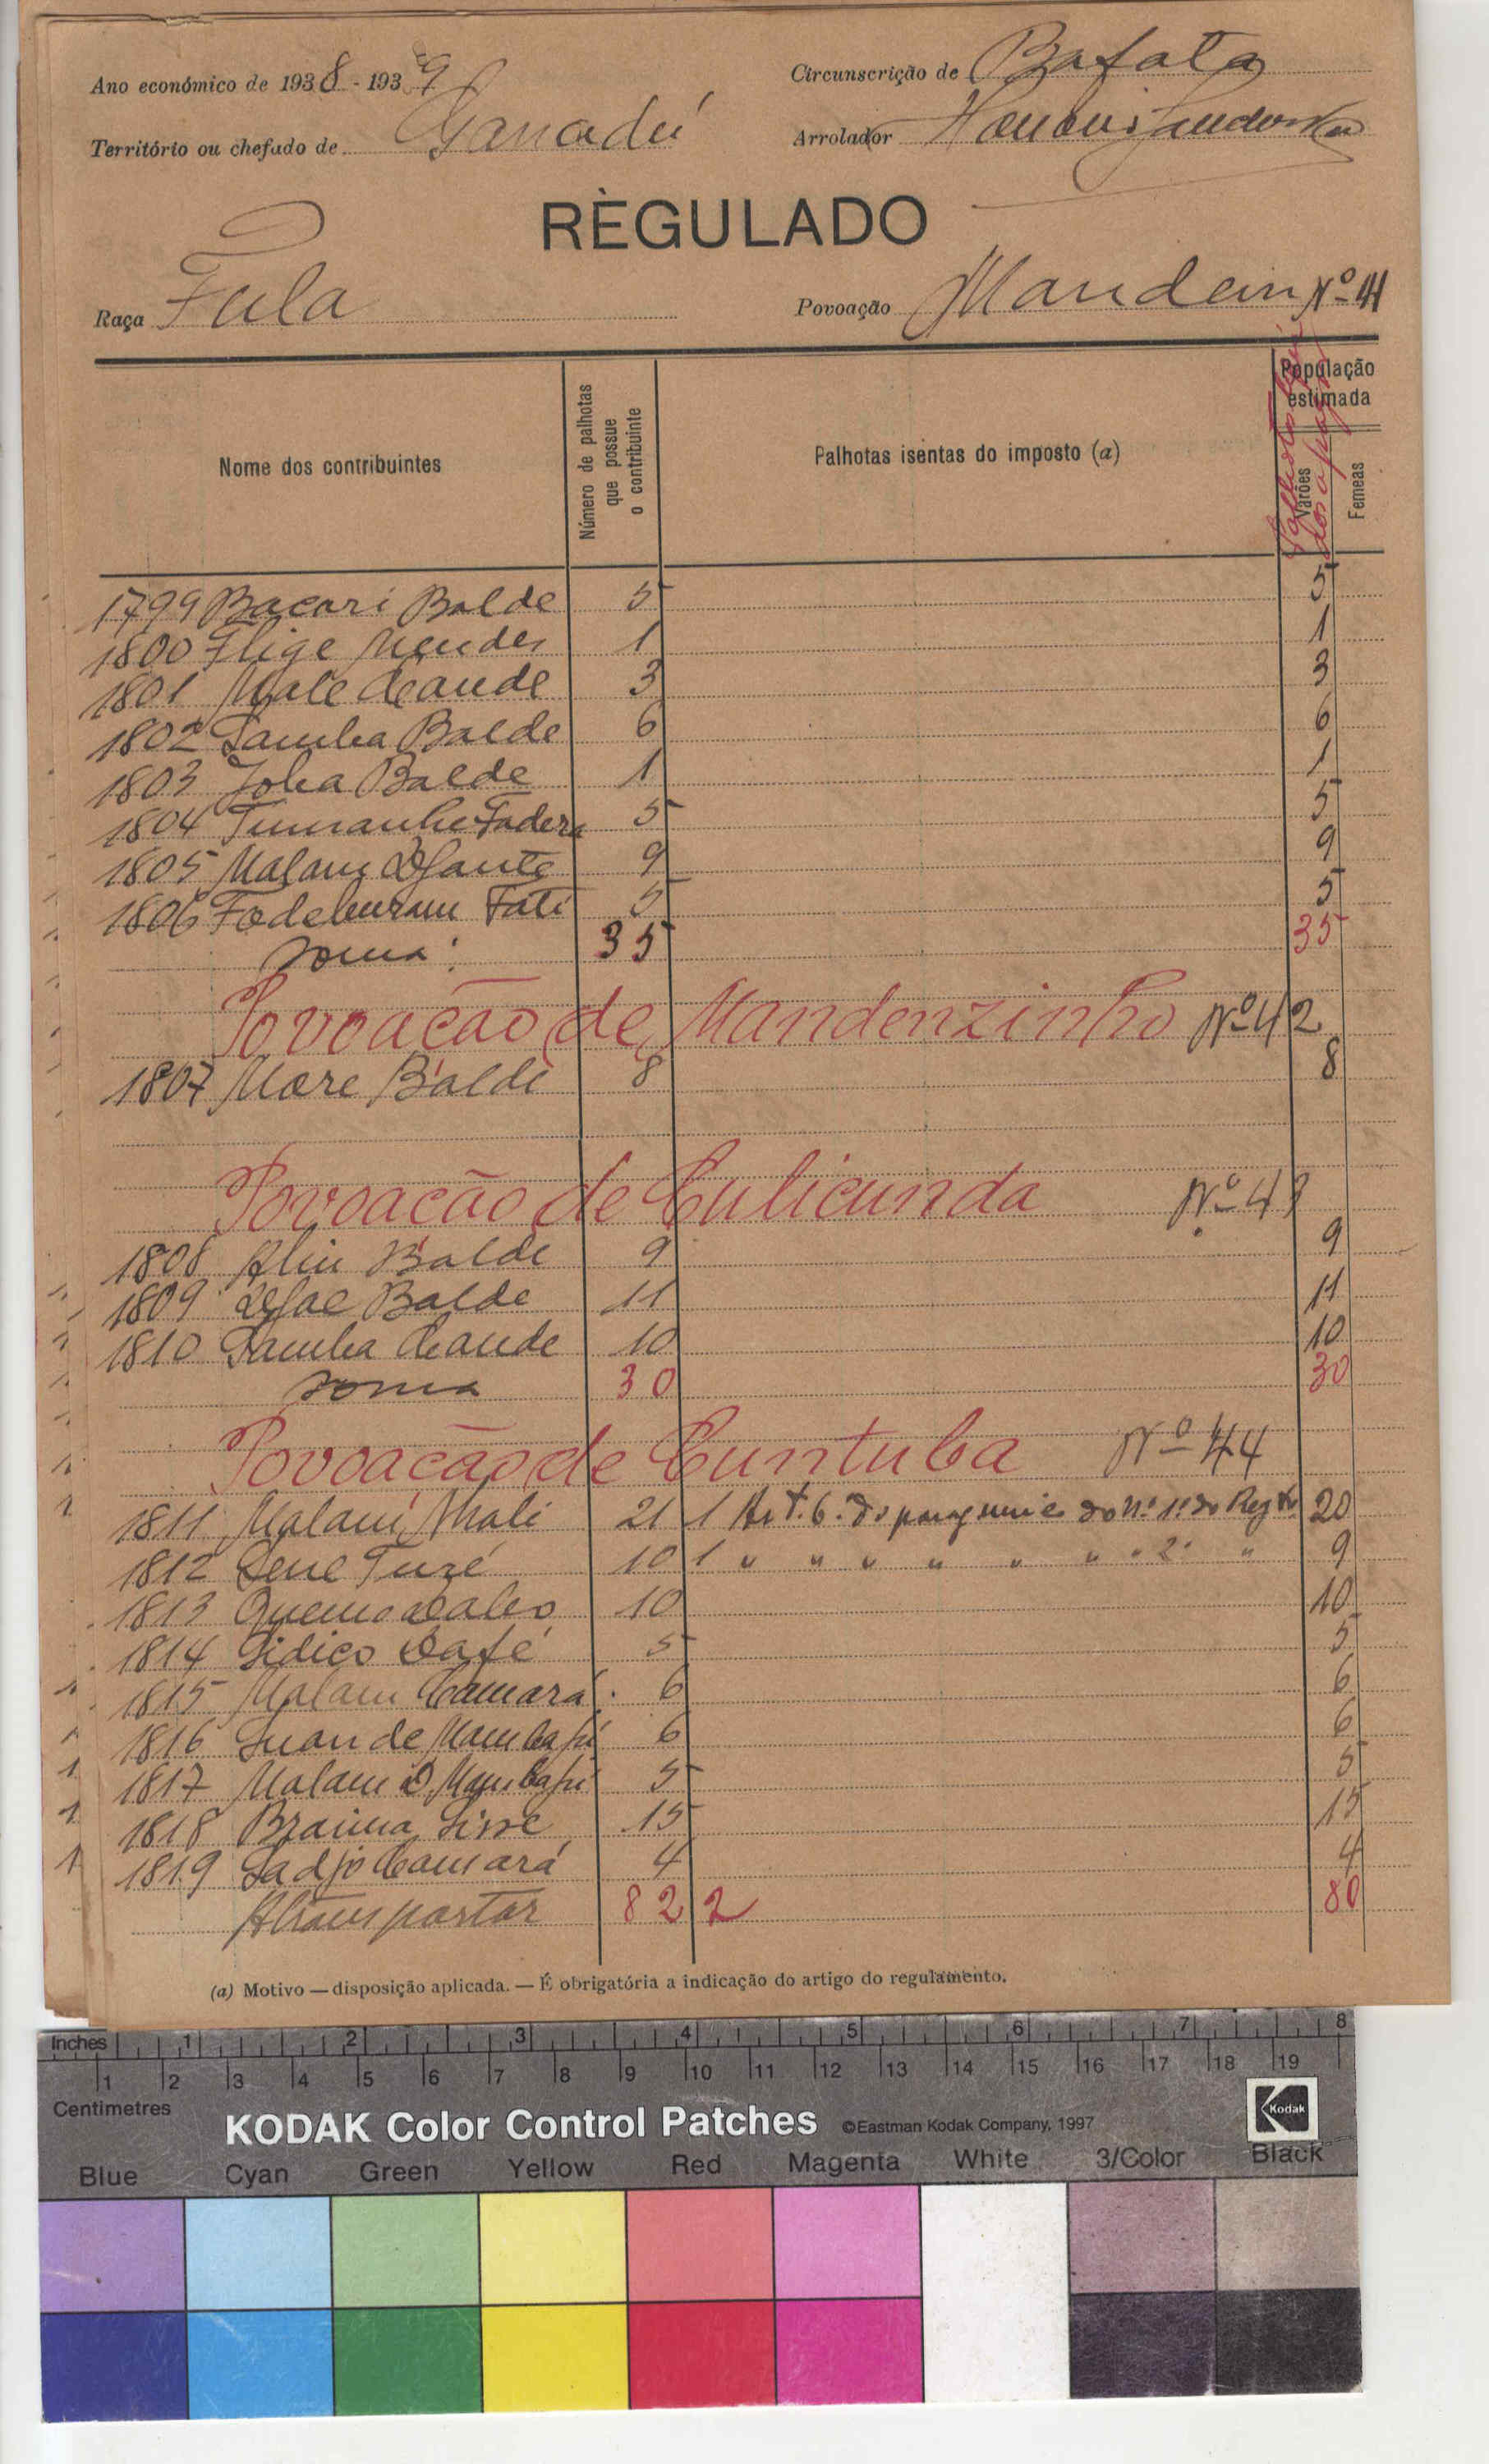 Ano económico de 1938-1939
Circunscrição de Bafata
Território ou chefado de Ganadú
Arrolador
RÈGULADO
Raça Fula
Povoação Manden Nº 41
Nome dos contribuintes
Número de palhotas que possue o contribuinte
Palhotas isentas do imposto (a)
População estimada
Varões
Femeas
1799 Bacari Balde 5 5
1800 Flige Mendes 1 1
1801 Male Cande 3 3
1802 Samba Balde 6 6
1803 Joba Balde 1 1
1804 Tumanhe Fadera 5 5
1805 Malam 9 9
1806 Fati 5 5
Soma: 35 35
Povoação de Mandenzinho Nº 42
1807 More Balde 8 8
Povoação de Culicunda Nº 43
1808 Aliu Balde 9 9
1809 Balde 11 11
1810 Samba Cande 10 10
Soma 30 30
Povoação de Cuntuba Nº 44
1811 Malam Mali 21 1 Art. 6.º do nº 1º do 20
1812 Turé 10 1 " " " " " " " 2º " 9
1813 Quemo 10 10
1814 Sidico Dafé 5 5
1815 Malam Camara 6 6
1816 Mambafu 6 6
1817 Malam D. Mambafu 5 5
1818 Braima Sisse 15 15
1819 Sadjo Camará 4 4
A transportar 82 2 80
(a) Motivo — disposição aplicada. — É obrigatória a indicação do artigo do regulamento.
Inches 1 2 3 4 5 6 7 8
1 2 3 4 5 6 7 8 9 10 11 12 13 14 15 16 17 18 19
Centimetres
KODAK Color Control Patches ©Eastman Kodak Company, 1997 Kodak
Blue Cyan Green Yellow Red Magenta White 3/Color Black